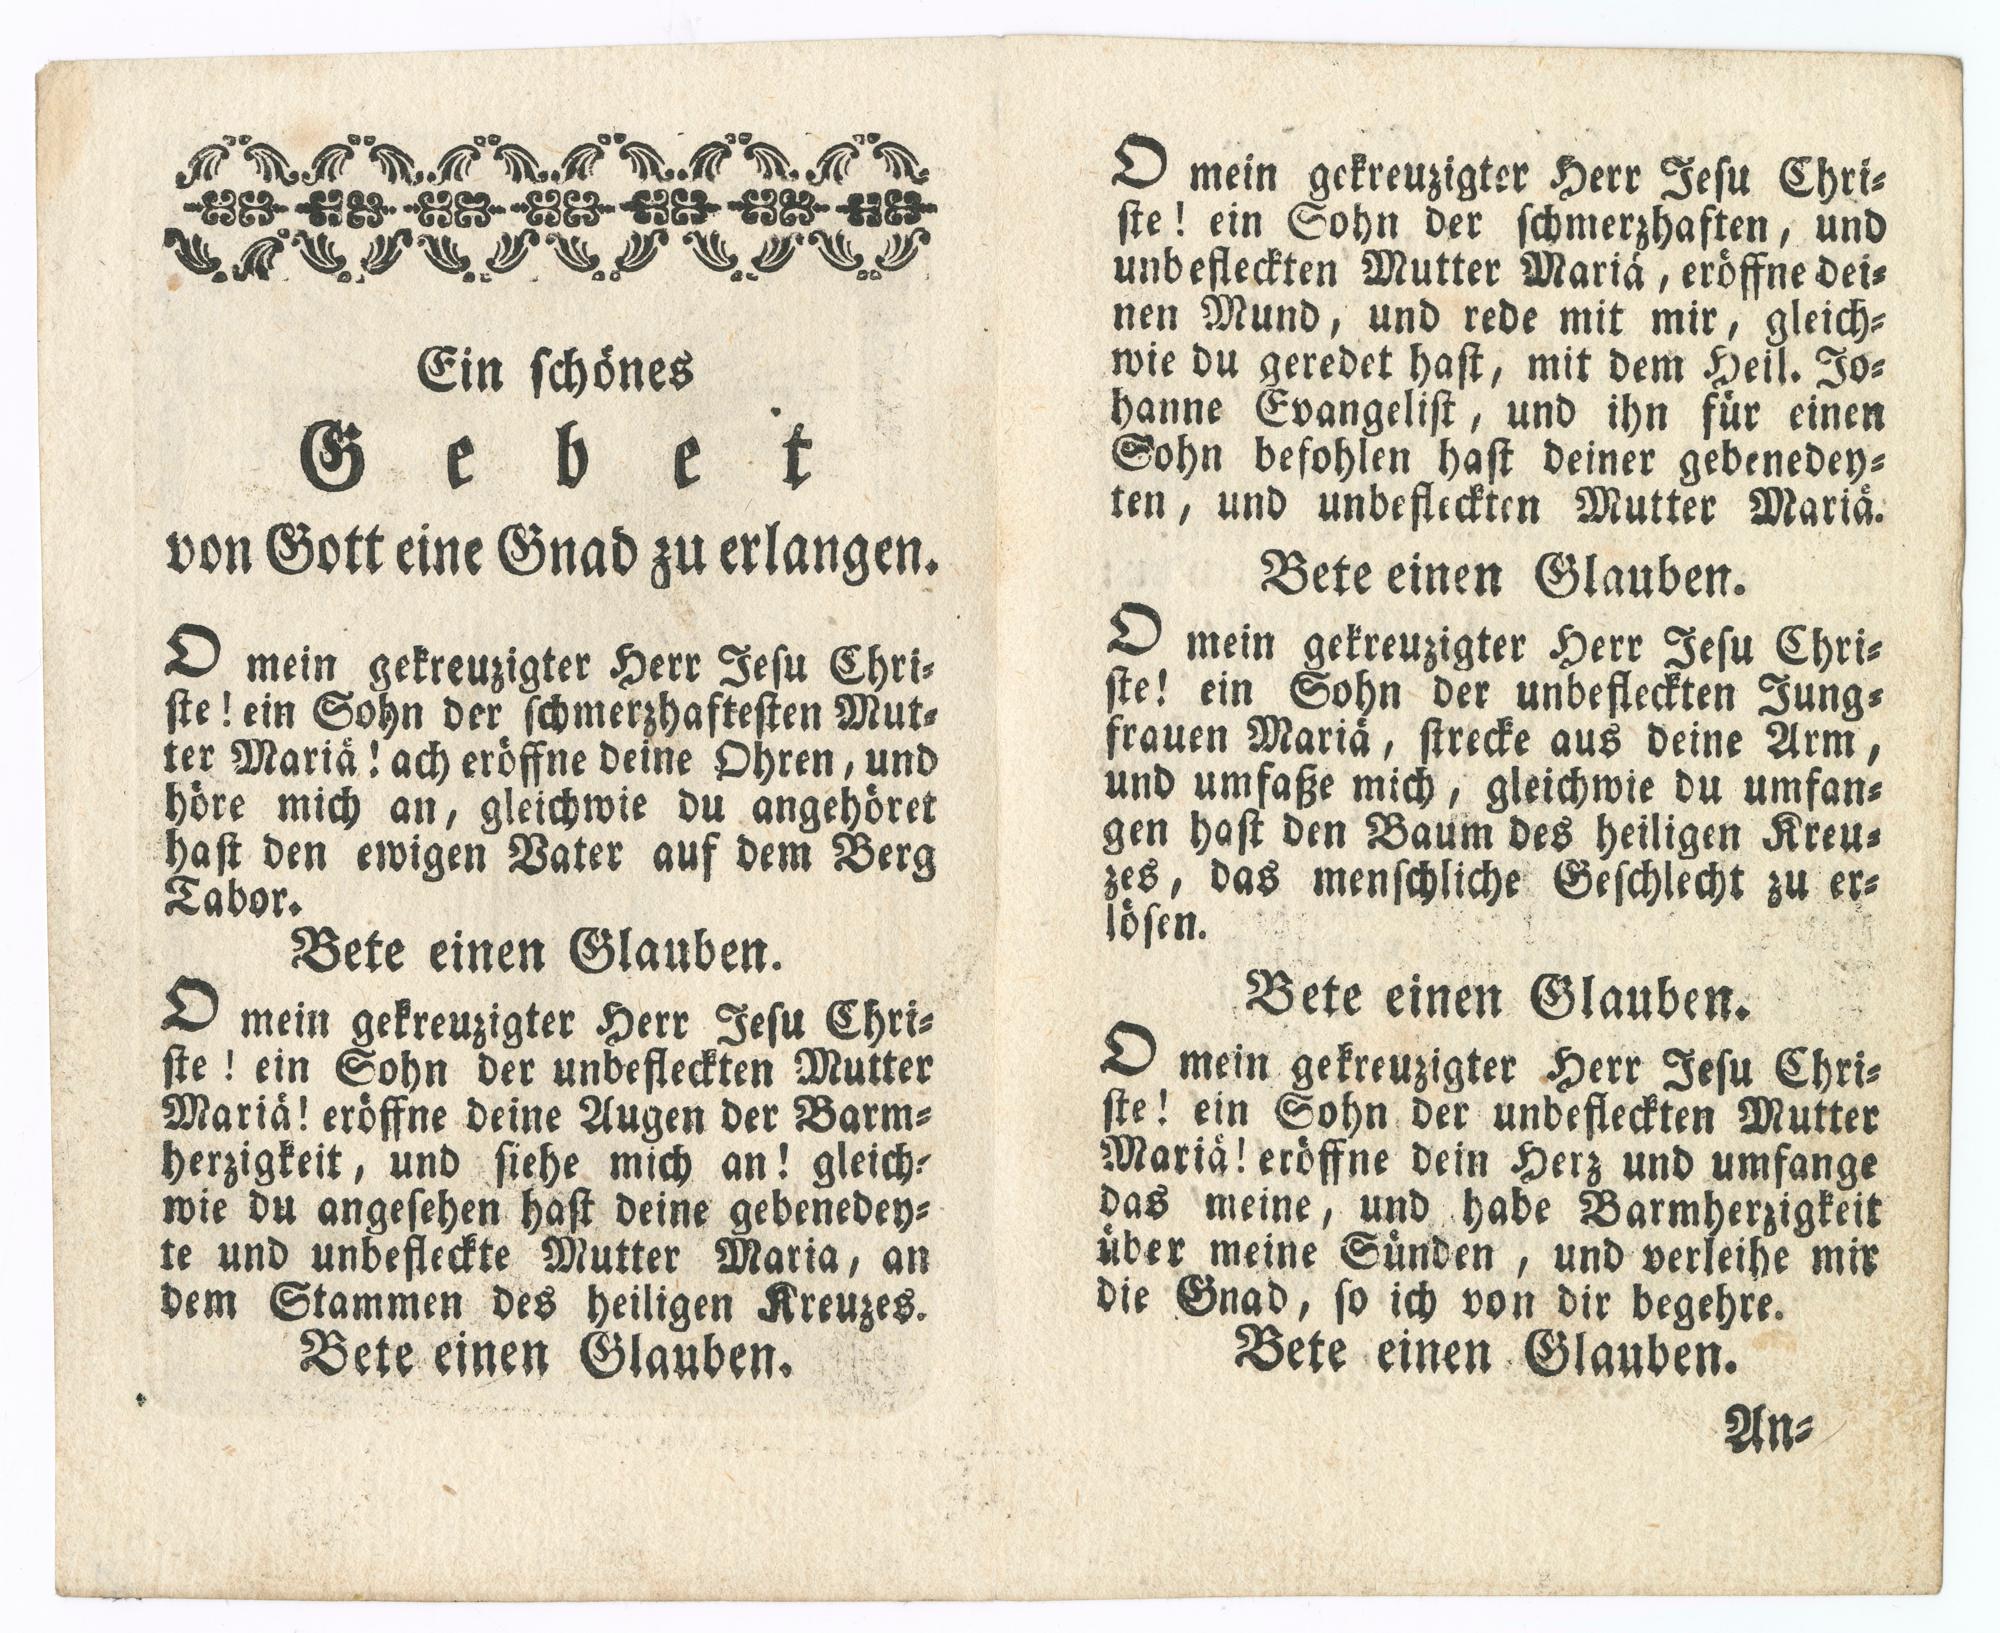 Ein schönes
Gebet
von Gott eine Gnad zu erlangen.
O mein gekreuzigter Herr Jesu Chri-
ste! ein Sohn der schmerzhaftesten Mut-
ter Mariä! ach eröffne deine Ohren, und
höre mich an, gleichwie du angehöret
hast den ewigen Vater auf dem Berg
Tabor.
Bete einen Glauben.
O mein gekreuzigter Herr Jesu Chri-
ste! ein Sohn der unbefleckten Mutter
Mariä! eröffne deine Augen der Barm-
herzigkeit, und siehe mich an! gleich-
wie du angesehen hast deine gebenedey-
te und unbefleckte Mutter Maria, an
dem Stammen des heiligen Kreuzes.
Bete einen Glauben.
O mein gekreuzigter Herr Jesu Chri-
ste! ein Sohn der schmerzhaften, und
unbefleckten Mutter Mariä, eröffne dei-
nen Mund, und rede mit mir, gleich-
wie du geredet hast, mit dem Heil. Jo-
hanne Evangelist, und ihn für einen
Sohn befohlen hast deiner gebenedey-
ten, und unbefleckten Mutter Mariä.
Bete einen Glauben.
O mein gekreuzigter Herr Jesu Chri-
ste! ein Sohn der unbefleckten Jung-
frauen Mariä, strecke aus deine Arm,
und umfaße mich, gleichwie du umfan-
gen hast den Baum des heiligen Kreu-
zes, das menschliche Geschlecht zu er-
lösen.
Bete einen Glauben.
O mein gekreuzigter Herr Jesu Chri-
ste! ein Sohn der unbefleckten Mutter
Mariä! eröffne dein Herz und umfange
das meine, und habe Barmherzigkeit
über meine Sünden, und verleihe mir
die Gnad, so ich von dir begehre.
Bete einen Glauben.
An-